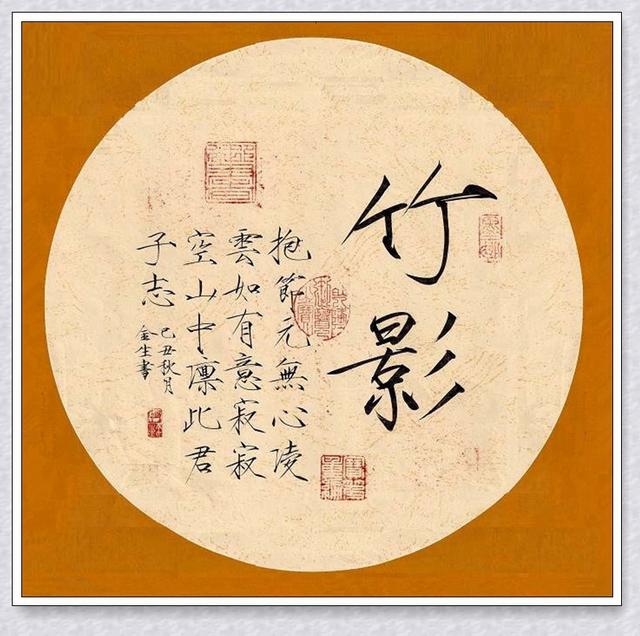 竹影
抱節元無心凌
雲如有意寂寂
空山中凛此君
子志
己丑秋月
金生書